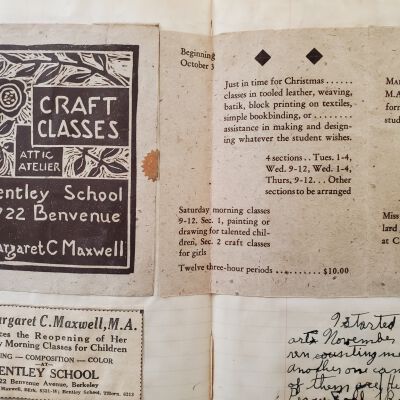 CRAFT
CLASSES
ATTIC
ATELIER
entley School
722 Benvenue
argaret C Maxwell
Beginning
October 3
Just in time for Christmas ......
classes in tooled leather, weaving,
batik, block printing on textiles,
simple bookbinding, or ........
assistance in making and design-
ing whatever the student wishes.
4 sections .. Tues. 1-4,
Wed. 9-12, Wed. 1-4,
Thurs, 9-12. . . Other
sections to be arranged
Saturday morning classes
9-12. Sec. 1, painting or
drawing for talented chil-
dren, Sec. 2 craft classes
for girls
Twelve three-hour periods .......... $10.00
Ma
M.A
for
stud
Miss
lard
at C
argaret C. Maxwell, M.A.
es the Reopening of Her
y Morning Classes for Children
ING — COMPOSITION — COLOR
AT
ENTLEY SCHOOL
22 Benvenue Avenue, Berkeley
Maxwell, BErk. 6321-W; Bentley School, THorn. 6213
I started
arts November
ren counting me
another one cam
of them are